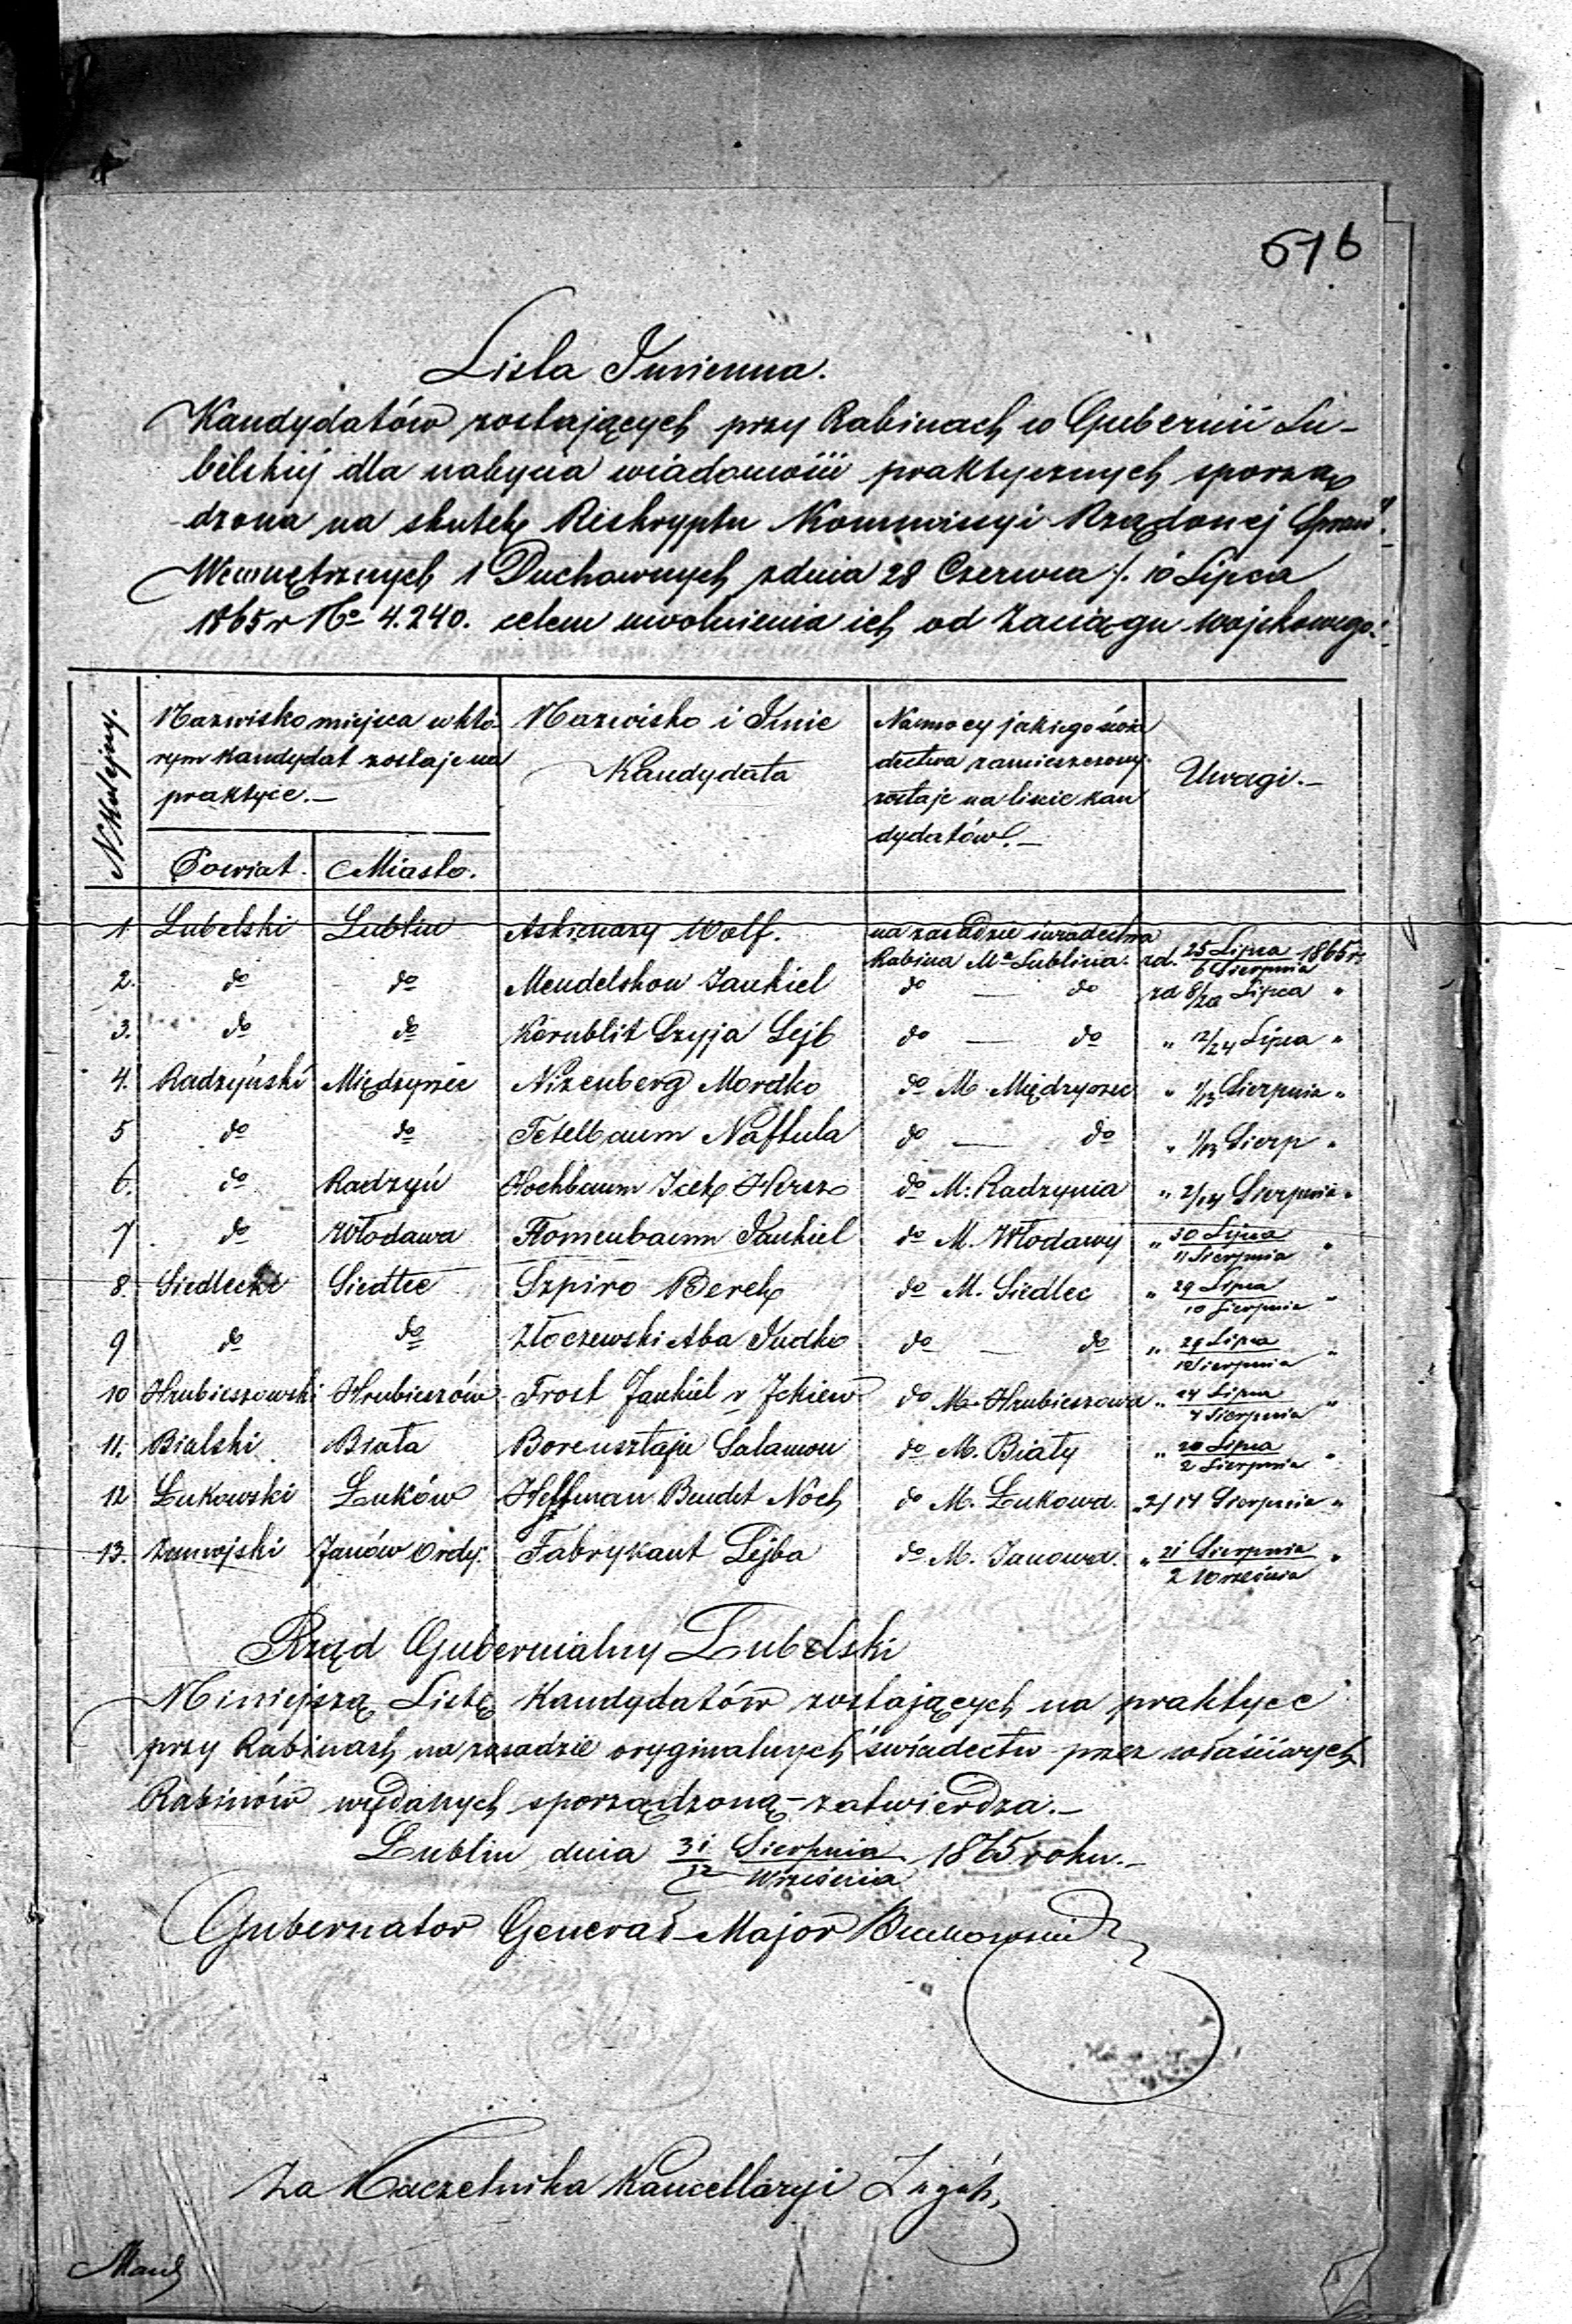 616
Lista Imienna.
Kandydatów zostających przy Rabinach w Gubernii Lu-
belskiej dla nabycia wiadomości praktycznych sporzą
dzona na skutek Reskryptu Kommissyi Rządowej Spraw
Wewnętrznych i Duchownych z dnia 28 Czerwca /. 10 Lipca
1865 r No 4.240. celem uwolnienia ich od Zaciągu Wojskowego.
N. Kolejny. Nazwisko miejsca w któ- Nazwisko i Imie Na mocy jakiego świa
rym kandydat zostaje na Kandydata dectwa zamieszczony Uwagi.-
praktyce.- zostaje na liscie kan
dydatów.-
Powiat. Miasto.
1 Lubelski Lublin Askenazy Wolf. na zasadzie swiadectwa
Rabina Ma Lublina. zd. 25 Lipca / 6 Sierpnia 1865 r.
2. do do Mendelshon Jankiel do — do zd 8/20 Lipca "
3. do do Kornblit Szyja Lejb do — do " 12/24 Lipca "
4. Radzyński Międzyrzéc Nizenberg Mordko do M. Międzyrzec " 1/13 Sierpnia "
5 do do Tetelbaum Naftula do — do " 1/13 Sierp "
6. do Radzyń Hochbaum Icek Hersz do M. Radzynia " 2/14 Sierpnia "
7 do Włodawa Flomenbaum Jankiel do M. Włodawy " 30 Lipca / 11 Sierpnia "
8. Siedlecki Siedlec Szpiro Berek do M. Siedlec " 29 Lipca / 10 Sierpnia "
9 do do Złoczewski Aba Judko do — do " 29 Lipca / 10 Sierpnia "
10 Hrubieszowski Hrubieszów Frost Jankiel v Ickiew do M. Hrubieszowa " 24 Lipca / 4 Sierpnia "
11. Bialski Biała Borensztajn Salamon do M. Biały " 20 Lipca / 2 Sierpnia "
12 Łukowski Łuków Heffman Bendet Noch do M. Łukowa. " 2/14 Sierpnia "
13. Zamojski Janów Ordy. Fabrykant Lejba do M. Janowa. " 21 Sierpnia / 2 Września "
Rząd Gubernialny Lubelski
Niniejszą Listę Kandydatów zostających na praktyce
przy Rabinach na zasadzie oryginalnych świadectw przez właściwych
Rabinów wydanych sporządzoną - zatwierdza.-
Lublin dnia 31/12 Sierpnia/Września 1865 roku.-
Gubernator Generał-Major Buckowski
Za Naczelnika Kancellaryi